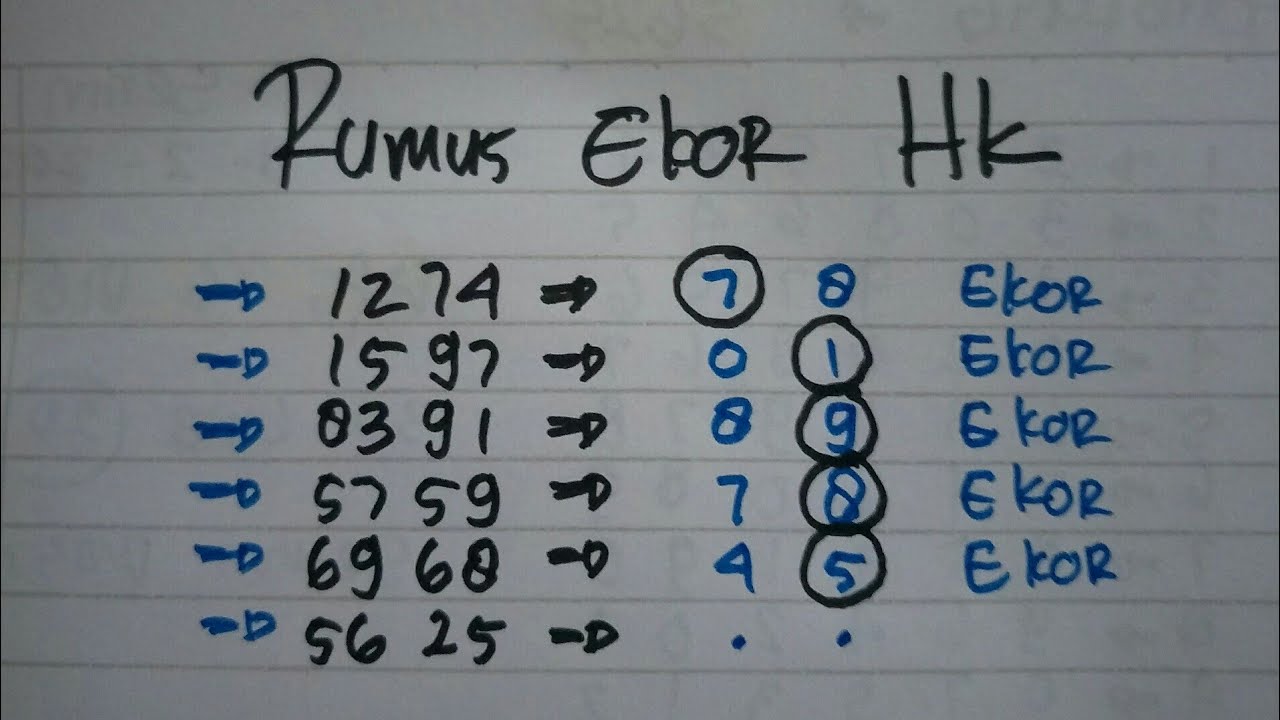 Rumus Ekor Hk
⇒ 1274 ⇒ 7 8 EKOR
⇒ 1597 ⇒ 0 1 EKOR
⇒ 8391 ⇒ 8 9 EKOR
⇒ 5759 ⇒ 7 8 EKOR
⇒ 6968 ⇒ 4 5 EKOR
⇒ 5625 ⇒ . .